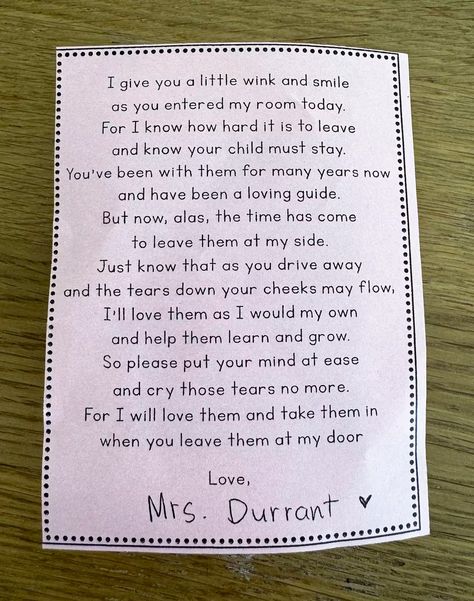 I give you a little wink and smile
as you entered my room today.
For I know how hard it is to leave
and know your child must stay.
You've been with them for many years now
and have been a loving guide.
But now, alas, the time has come
to leave them at my side.
Just know that as you drive away
and the tears down your cheeks may flow,
I'll love them as I would my own
and help them learn and grow.
So please put your mind at ease
and cry those tears no more.
For I will love them and take them in
when you leave them at my door
Love,
Mrs. Durrant ♥